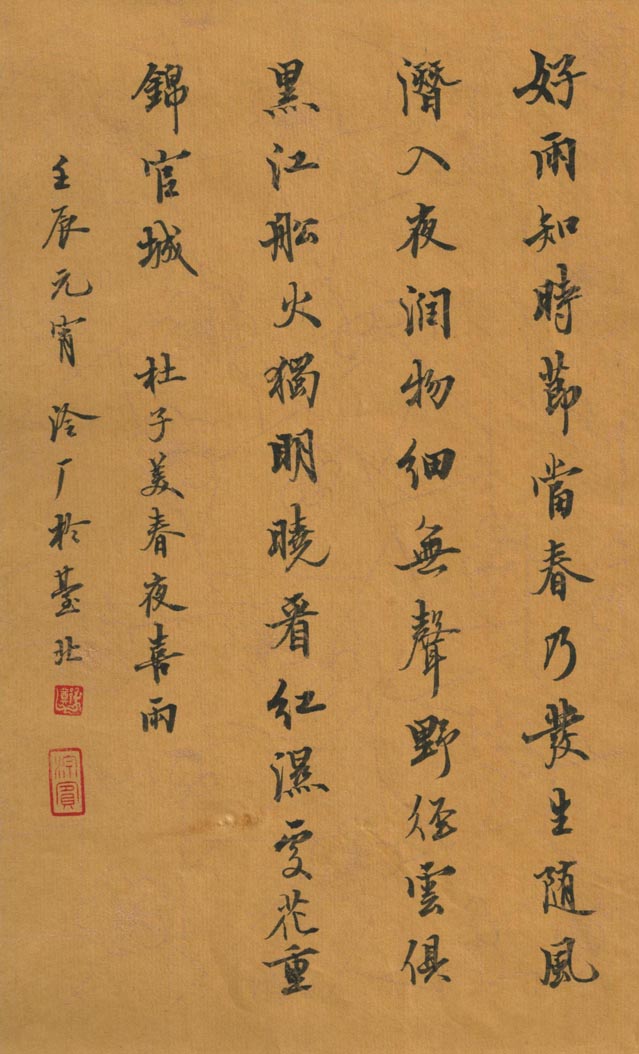 好雨知時節當春乃發生随風
潛入夜润物细無聲野径雲俱
黑江船火獨明曉看红濕處花重
錦官城 杜子美春夜喜雨
壬辰元宵 泠厂於臺北